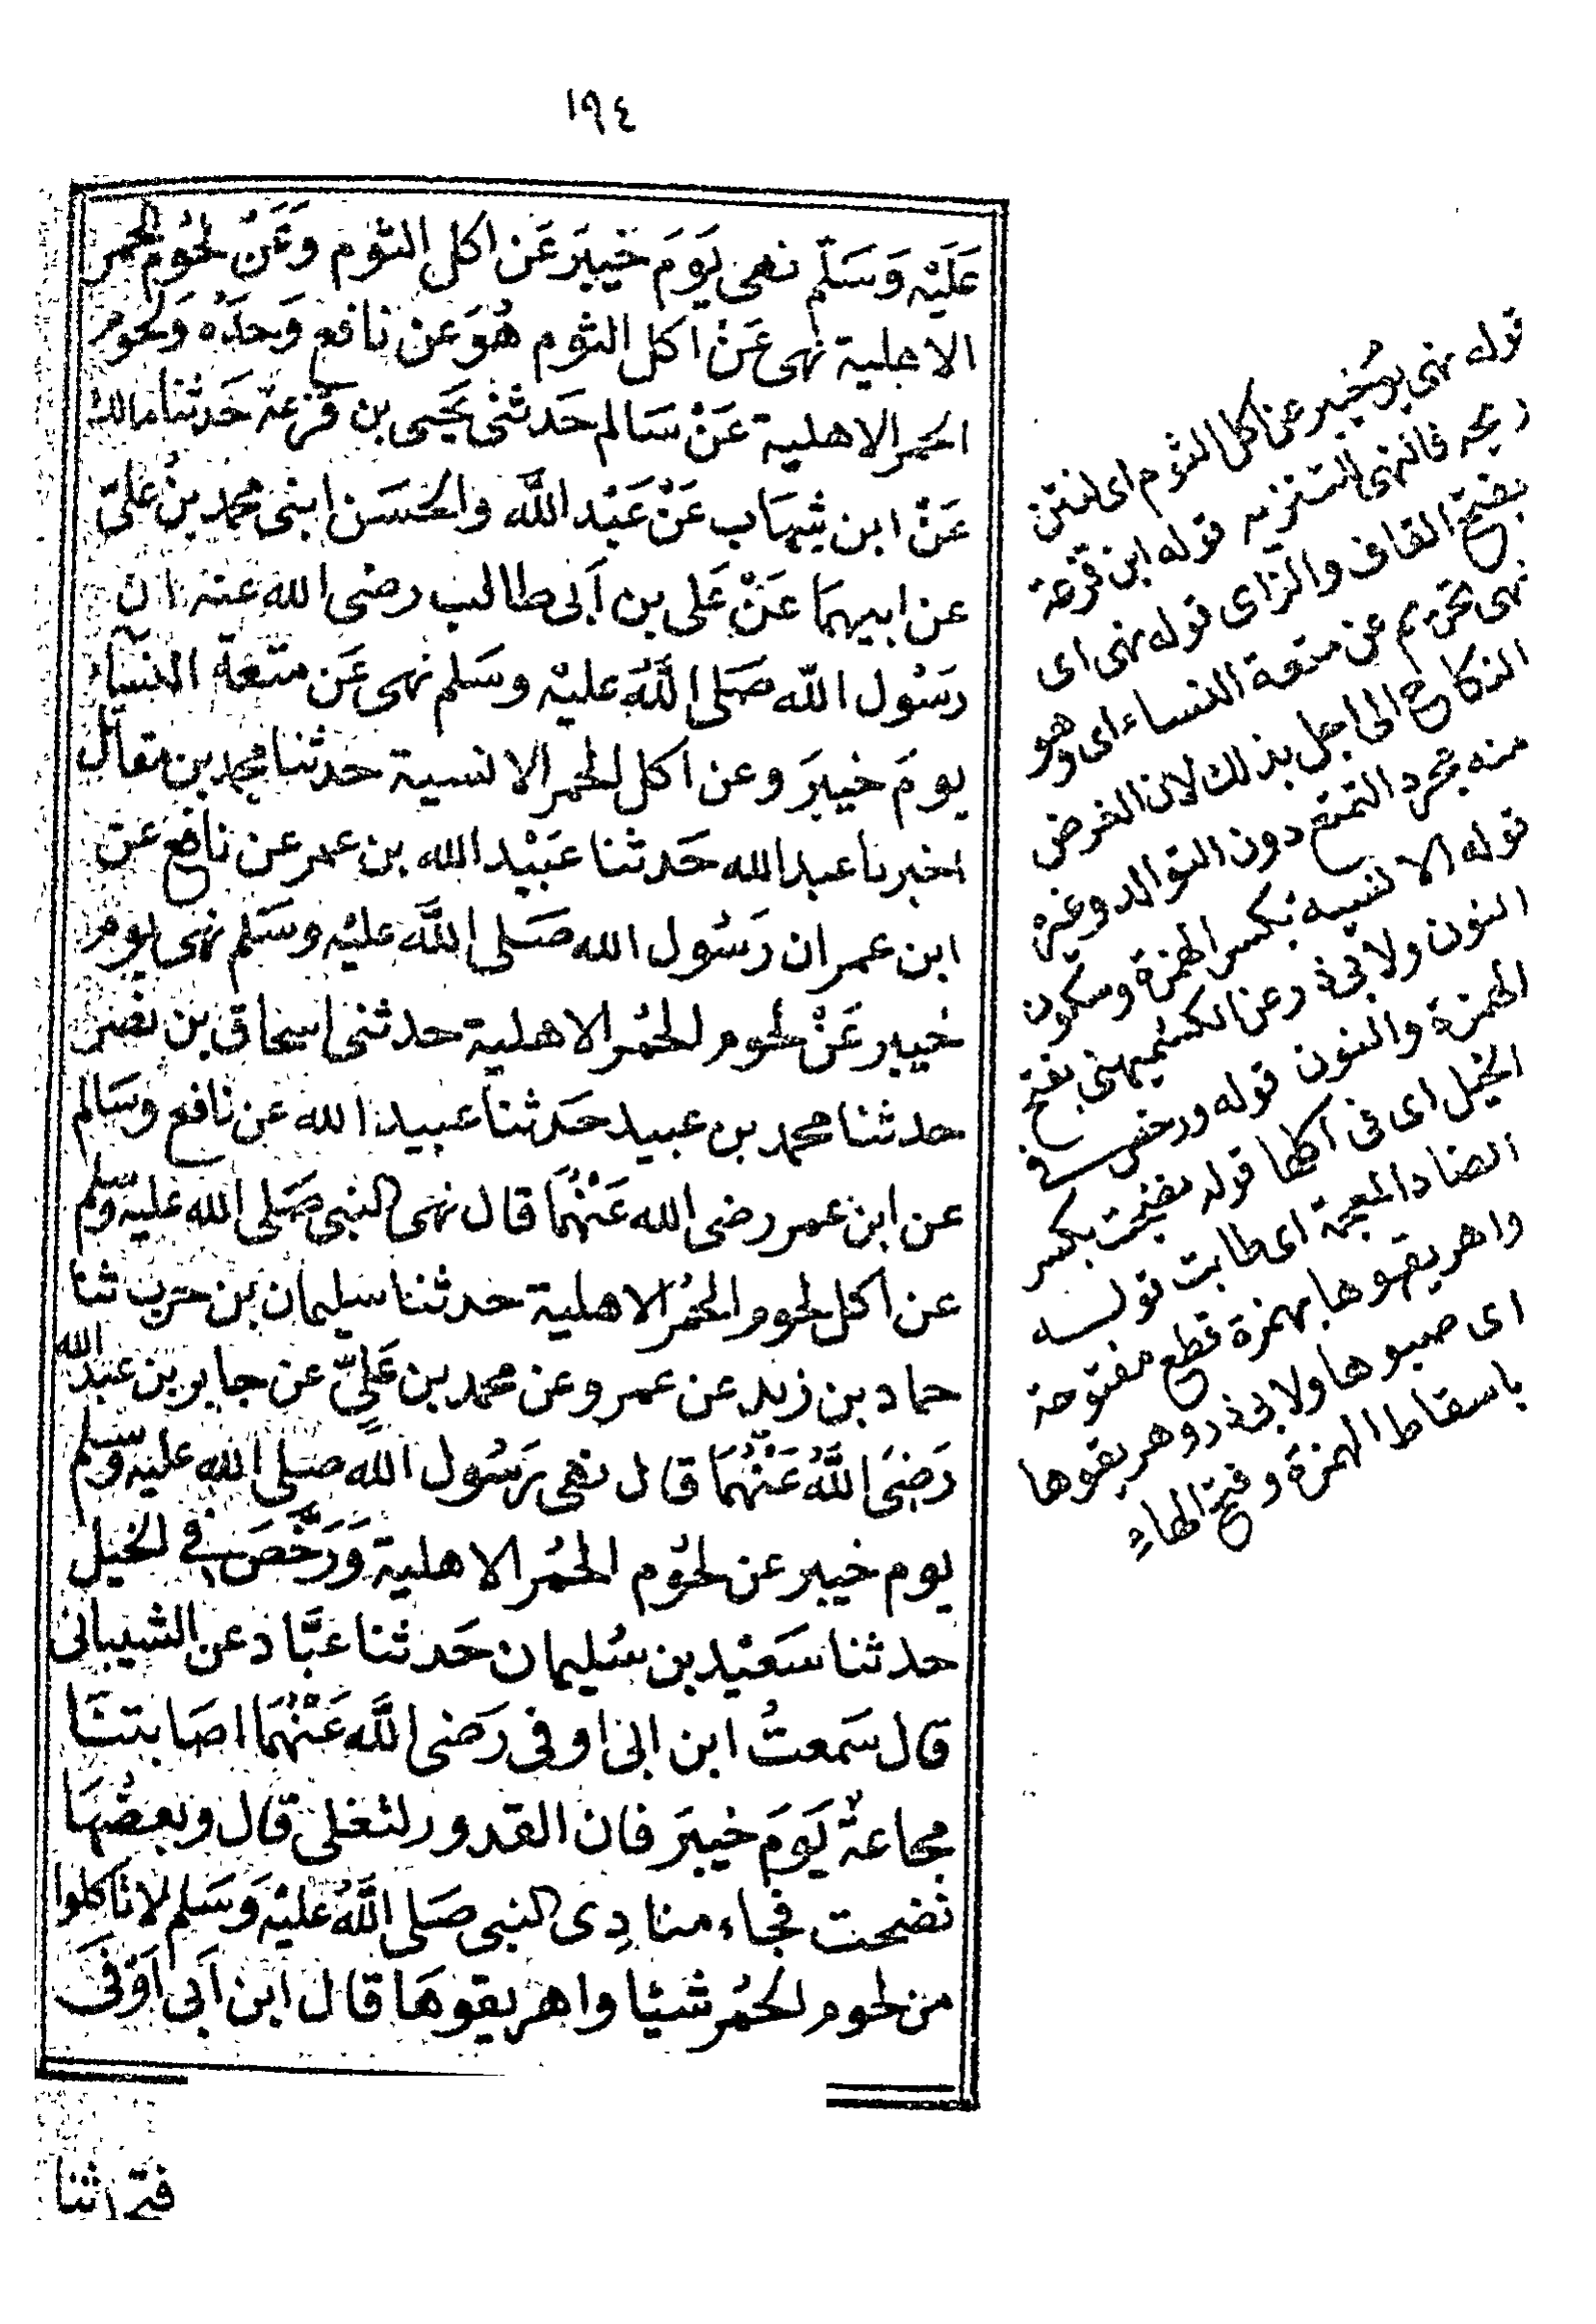 ١٩٤
عَلَيْه وَسَلّم نهى يَومَ خيبَر عَن اكل الثوم وَعَنْ لحُوم الحمر
الاهلية نهى عَنْ اكل الثوم هُوَ عن نافع وَحدَه وَلحوم
الحمر الاهلية عَنْ سَالم حَدثنى يحَيى بن قزعة حَدثنا مالك
عَنْ ابن شِهَاب عَنْ عَبْد اللَّه والحسَن ابنى محمد بنُ عَلىّ
عن ابيهمَا عَنْ عَلى بن اَبى طالب رضى الله عنه ان
رَسُول الله صَلى اللَّهُ عليْه وسَلم نهى عَن متْعة النسَاء
يومَ خيبَر وعن اكل لحمر الانسية حدثنا محمد بن مقاتل
اخبرنا عبد الله حَدثنا عَبَيْد الله بن عمر عن نافع عن
ابن عمر ان رَسُول الله صَلى اللَّه عليْه وسَلم نهى يوم
خيبر عَنْ لحوم لحُمر الاهلية حدثنى اسحاق بن نصر
حدثنا محمد بن عبيد حَدثنا عبيد الله عن نافع وسَالم
عن ابن عمر رضى الله عَنْهُمَا قال نهى النبى صَلى الله عليه وسلم
عن اكل لحوم الحُمر الاهلية حدثنا سليمان بن حرب ثنا
حماد بن زيد عن عمرو عن محمد بن عَلىّ عن جابر بن عبد الله
رَضىَ اللَّهُ عَنْهُمَا قال نهى رَسُول اللَّه صلى الله عليه وسلم
يوم خيبر عن لحُوم الحُمر الاهلية وَرَخَّصَ فى الخيل
حدثنا سَعيْد بن سُليمان حَدثنا عبَّاد عن الشيبانى
قال سَمعتُ ابن ابى اوفى رَضى اللَّه عَنْهُمَا اصَابتنَا
مجاعةٌ يَومَ خيبَر فان القدور لتغلى قال وبعضُهَا
نضجت فجاء منادِى النبى صَلى اللَّهُ عليْه وَسَلم لا تاكلوا
من لحوم لحُمر شيئا واهريقوهَا قال ابن اَبى اَوفَى
قوله نهى يوم خيبر عن اكل الثوم اى لنتن
ريحه فالنهى للتنزيه قوله ابن قزعة
بفتح القاف والزاى قوله نهى اى
نهى تحريم عن متعة النساء اى وهو
النكاح الى اجل بذلك لان الغرض
منه مجرد التمتع دون التوالد وغيره
قوله الانسيه بكسر الهمزة وسكون
النون ولابى ذر عن الكشميهنى بفتح
الهمزة والنون قوله ورخص فى
الخيل اى فى اكلها قوله نضجت بكسر
الضاد المعجمة اى طابت قوله
واهريقوها بهمزة قطع مفتوحة
اى صبوها ولابى ذر وهريقوها
باسقاط الهمزة وفتح الهاء